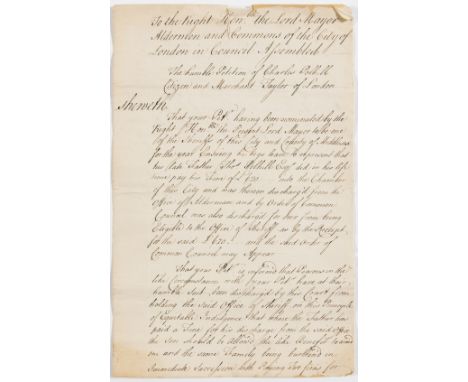 To the Right Hon.ble the Lord Mayor
Aldermen and Commons of the City of
London in Council Assembled
The humble Petition of Charles Polhill
Citizen and Merchant Taylor of London
Sheweth
That your Pet.r having been nominated by the
Right Hon.ble the present Lord Mayor to be one
of the Sheriffs of this City and County of Middlesex
for the year Ensuing he begs leave to represent that
his late Father Esq.r did in his life
time pay his Fine of £620 into the Chamber
of this City and was thereon discharg'd from the
Office of Alderman and by Order of Common
Council was also discharg'd for ever from being
Eligible to the Office of Sheriff as by the Receipt
for the said £620 and the said Order of
Common Council may Appear
That your Pet.r is informd that Persons in the
like Circumstances with your Pet.r have at their
humble Suit been discharged by this Court from
holding the said Office of Sheriff on this Principle
of Equitable Indulgence That where the Father has
paid a Fine for his discharge from the said Office
the Son should be allowd the like Benefit to avoid
one and the same Family being burthend in
Immediate Succession with Paying two fines for